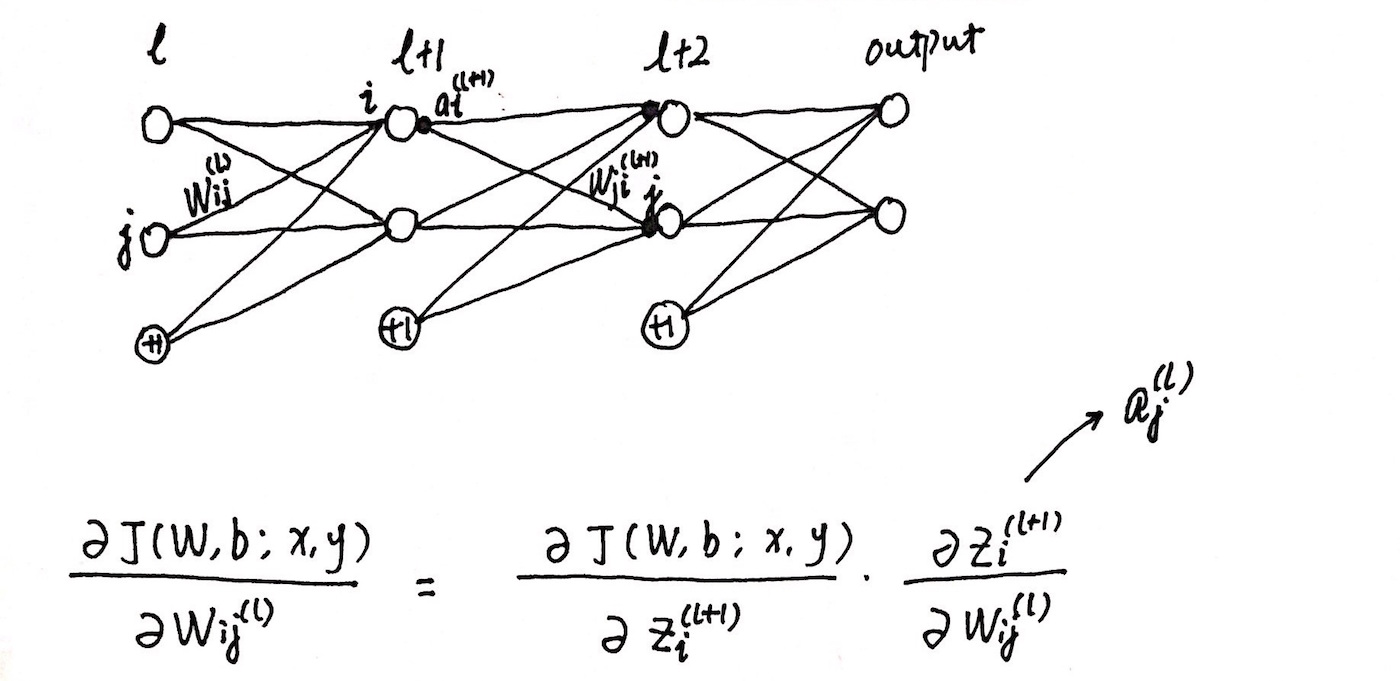 l l+1 l+2 output
i aᵢ⁽ˡ⁺¹⁾
Wᵢⱼ⁽ˡ⁾ Wⱼᵢ⁽ˡ⁺¹⁾ j
j
+1 +1 +1
aⱼ⁽ˡ⁾
∂J(W,b; x,y) / ∂Wᵢⱼ⁽ˡ⁾ = ∂J(W,b; x,y) / ∂zᵢ⁽ˡ⁺¹⁾ · ∂zᵢ⁽ˡ⁺¹⁾ / ∂Wᵢⱼ⁽ˡ⁾